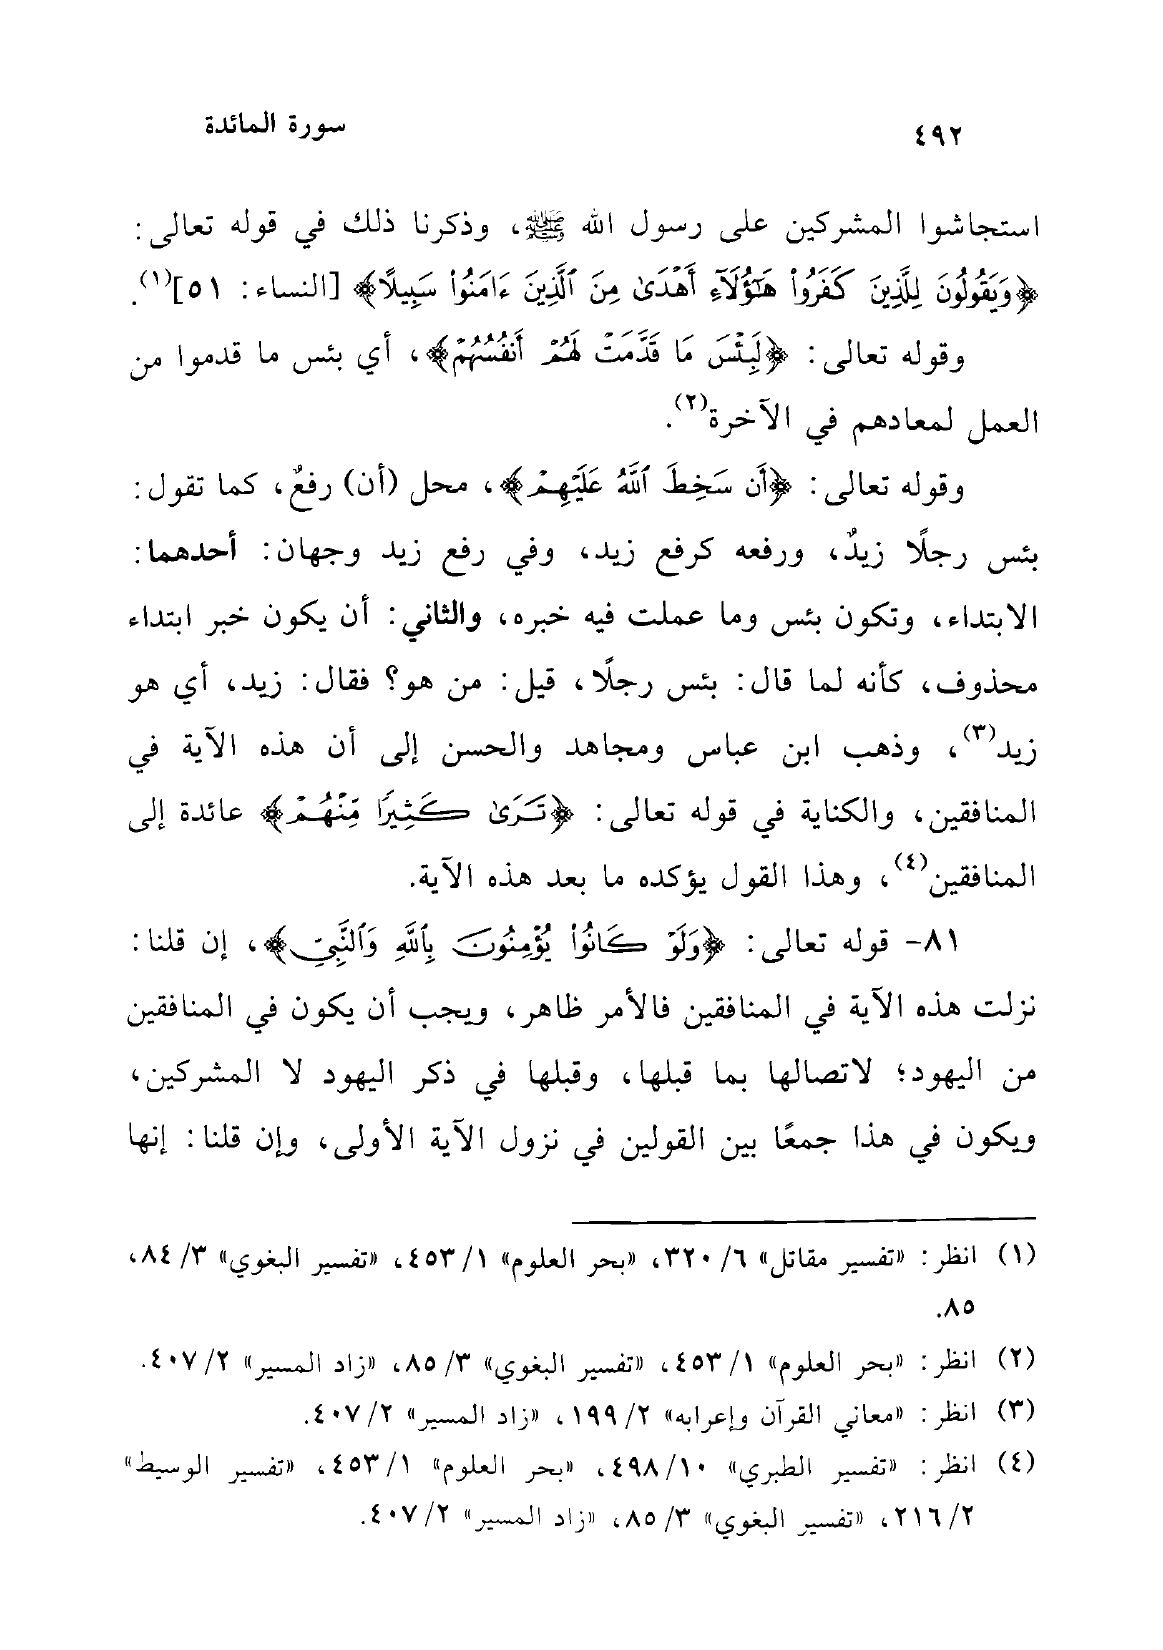 ٤٩٢ سورة المائدة
استجاشوا المشركين على رسول الله ﷺ، وذكرنا ذلك في قوله تعالى:
﴿وَيَقُولُونَ لِلَّذِينَ كَفَرُوا۟ هَٰٓؤُلَآءِ أَهْدَىٰ مِنَ ٱلَّذِينَ ءَامَنُوا۟ سَبِيلًا﴾ [النساء: ٥١](١).
وقوله تعالى: ﴿لَبِئْسَ مَا قَدَّمَتْ لَهُمْ أَنفُسُهُمْ﴾، أي بئس ما قدموا من
العمل لمعادهم في الآخرة(٢).
وقوله تعالى: ﴿أَن سَخِطَ ٱللَّهُ عَلَيْهِمْ﴾، محل (أن) رفعٌ، كما تقول:
بئس رجلًا زيدٌ، ورفعه كرفع زيد، وفي رفع زيد وجهان: أحدهما:
الابتداء، وتكون بئس وما عملت فيه خبره، والثاني: أن يكون خبر ابتداء
محذوف، كأنه لما قال: بئس رجلًا، قيل: من هو؟ فقال: زيد، أي هو
زيد(٣)، وذهب ابن عباس ومجاهد والحسن إلى أن هذه الآية في
المنافقين، والكناية في قوله تعالى: ﴿تَرَىٰ كَثِيرًا مِّنْهُمْ﴾ عائدة إلى
المنافقين(٤)، وهذا القول يؤكده ما بعد هذه الآية.
٨١- قوله تعالى: ﴿وَلَوْ كَانُوا۟ يُؤْمِنُونَ بِٱللَّهِ وَٱلنَّبِىِّ﴾، إن قلنا:
نزلت هذه الآية في المنافقين فالأمر ظاهر، ويجب أن يكون في المنافقين
من اليهود؛ لاتصالها بما قبلها، وقبلها في ذكر اليهود لا المشركين،
ويكون في هذا جمعًا بين القولين في نزول الآية الأولى، وإن قلنا: إنها
(١) انظر: «تفسير مقاتل» ٦/ ٣٢٠، «بحر العلوم» ١/ ٤٥٣، «تفسير البغوي» ٣/ ٨٤،
٨٥.
(٢) انظر: «بحر العلوم» ١/ ٤٥٣، «تفسير البغوي» ٣/ ٨٥، «زاد المسير» ٢/ ٤٠٧.
(٣) انظر: «معاني القرآن وإعرابه» ٢/ ١٩٩، «زاد المسير» ٢/ ٤٠٧.
(٤) انظر: «تفسير الطبري» ١٠/ ٤٩٨، «بحر العلوم» ١/ ٤٥٣، «تفسير الوسيط»
٢/ ٢١٦، «تفسير البغوي» ٣/ ٨٥، «زاد المسير» ٢/ ٤٠٧.